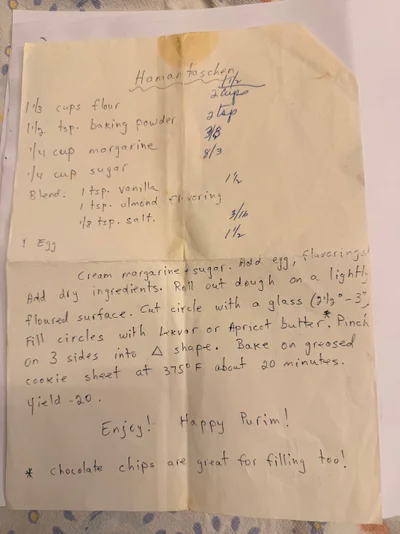 Hamantaschen
1 1/2
1 1/3 cups flour 2 cups
1 1/2 tsp. baking powder 2 tsp
1/4 cup margarine 3/8
1/4 cup sugar 8/3
Blend. 1 tsp. vanilla 1 1/2
1 tsp. almond flavoring
1/8 tsp. salt. 3/16
1 Egg 1 1/2
Cream margarine + sugar. Add egg, flavorings
Add dry ingredients. Roll out dough on a lightly
floured surface. Cut circle with a glass (2 1/2" - 3")
Fill circles with Lekvar or Apricot butter.* Pinch
on 3 sides into △ shape. Bake on greased
cookie sheet at 375°F about 20 minutes.
Yield - 20.
Enjoy! Happy Purim!
* Chocolate chips are great for filling too!